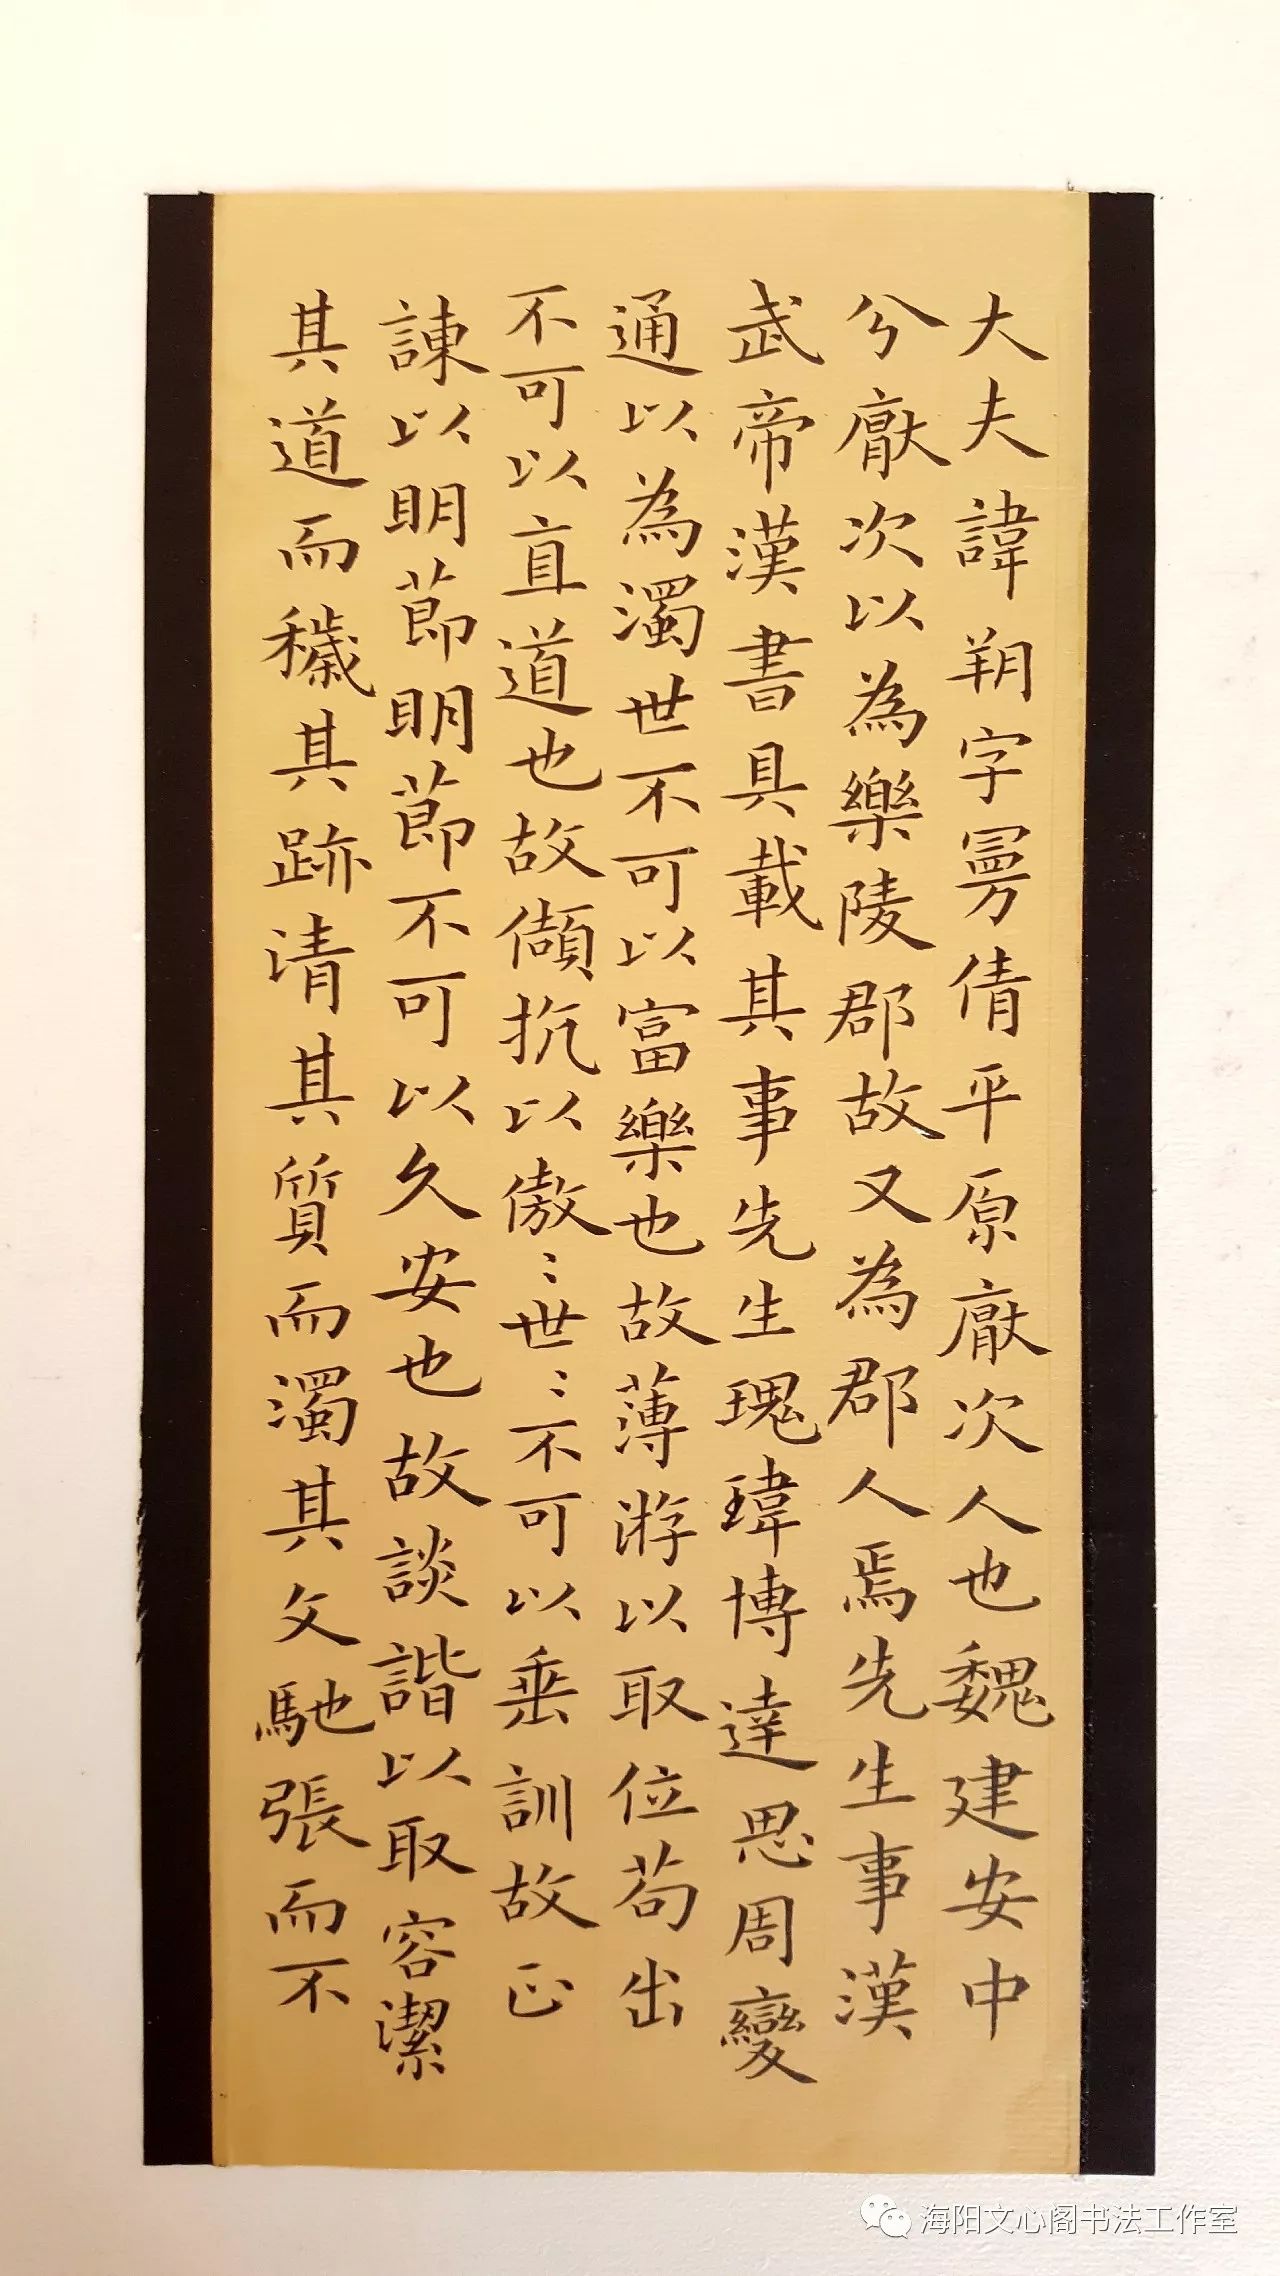 大夫諱朔字曼倩平原厭次人也魏建安中
兮厭次以為樂陵郡故又為郡人焉先生事漢
武帝漢書具載其事先生瑰瑋博達思周變
通以為濁世不可以富樂也故薄游以取位苟出
不可以直道也故傾抗以傲〻世〻不可以垂訓故正
諫以明節明節不可以久安也故談諧以取容潔
其道而穢其跡清其質而濁其文馳張而不
海阳文心阁书法工作室